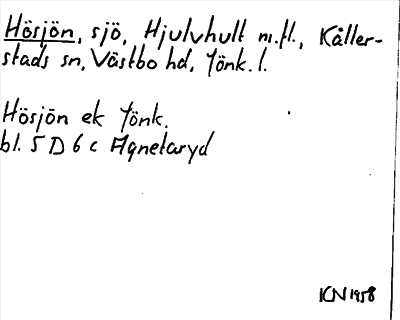 Hösjön, sjö, Hjulvhult m.fl., Kåller-
stads sn, Västbo hd, Jönk. l.
Hösjön ek Jönk.
bl. 5 D 6 c Agnetaryd
KN 1958